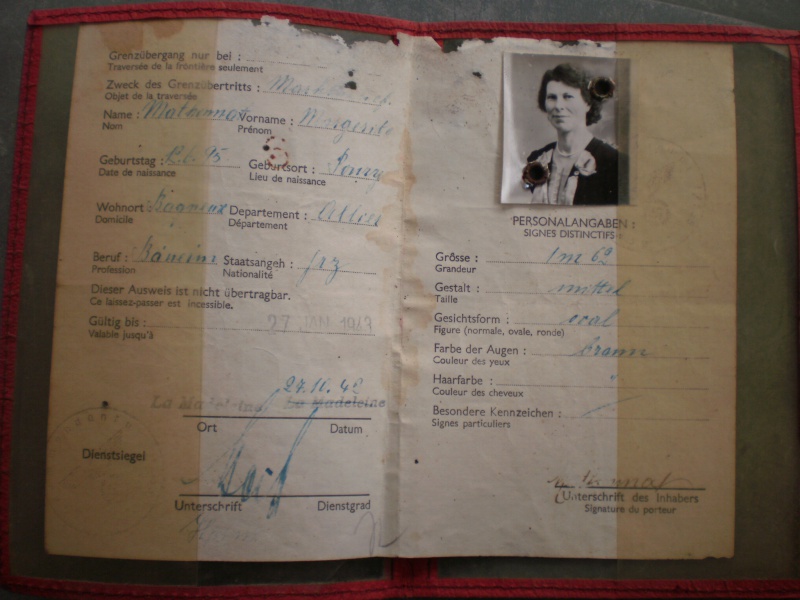 Grenzübergang nur bei :
Traversée de la frontière seulement
Zweck des Grenzübertritts :
Objet de la traversée
Name : Vorname :
Nom Prénom
Geburtstag : Geburtsort :
Date de naissance Lieu de naissance
Wohnort Departement : Allier
Domicile Département
Beruf : Bäuerin Staatsangeh : frz
Profession Nationalité
Dieser Ausweis ist nicht übertragbar.
Ce laissez-passer est incessible.
Gültig bis : 27 JAN 1943
Valable jusqu'à
27.10.42
La Madeleine La Madeleine
Ort Datum
Dienstsiegel
Unterschrift Dienstgrad
PERSONALANGABEN :
SIGNES DISTINCTIFS
Grösse : 1m 69
Grandeur
Gestalt : mittel
Taille
Gesichtsform : oval
Figure (normale, ovale, ronde)
Farbe der Augen : braun
Couleur des yeux
Haarfarbe :
Couleur des cheveux
Besondere Kennzeichen :
Signes particuliers
Unterschrift des Inhabers
Signature du porteur